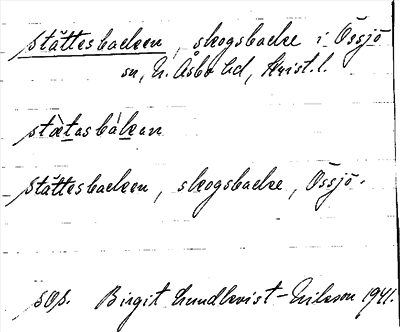 stättesbacken, skogsbacke i Össjö
sn, N. Åsbo hd, Krist. l.
stæ̀tasbàkan
Stättesbacken, skogsbacke, Össjö.
sop. Birgit Lundkvist-Nilsson 1941.